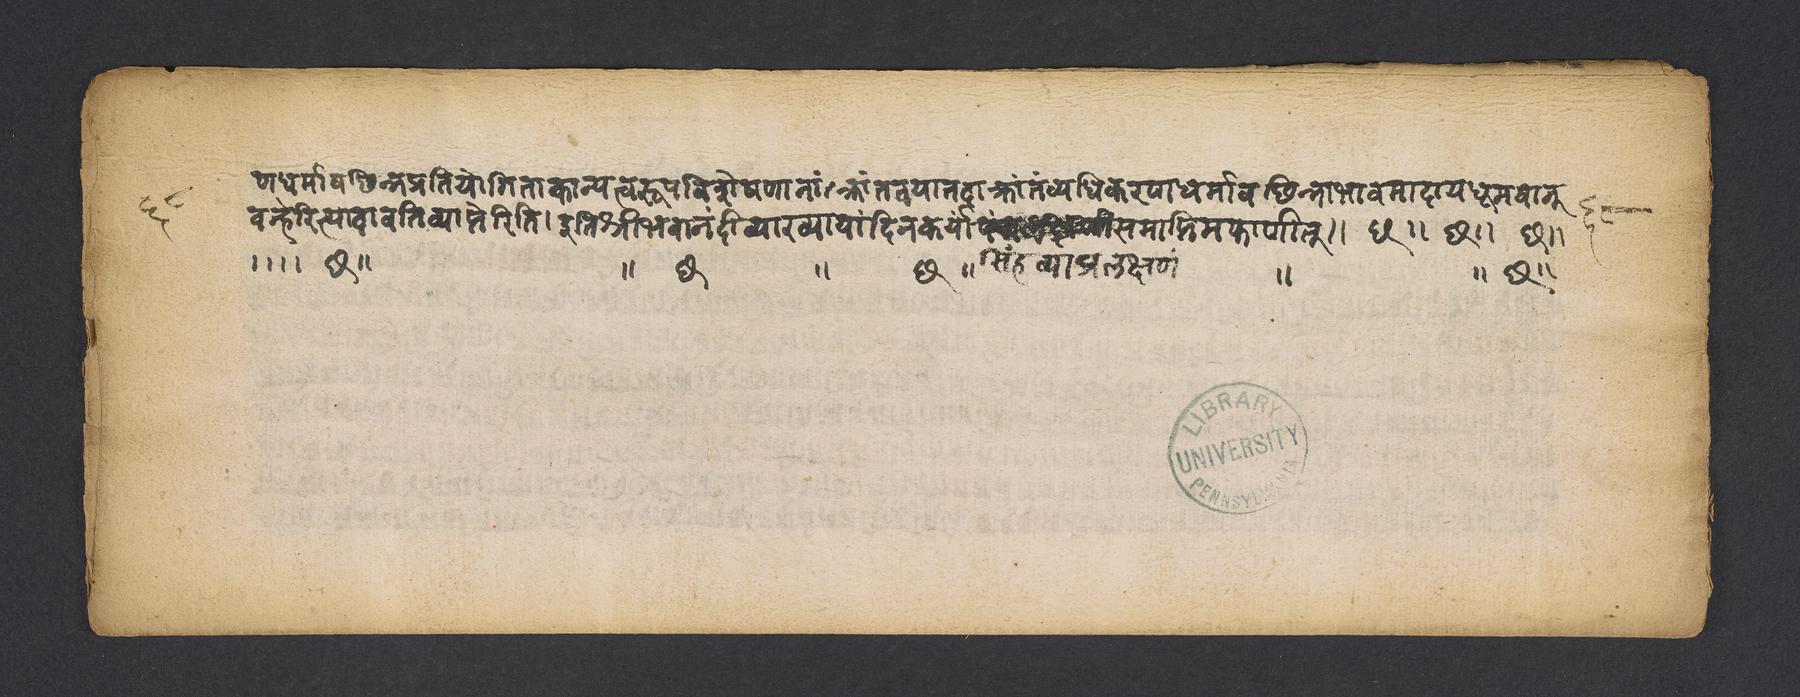 णधर्मावछिन्नप्रतियोगिताकान्यत्वेरूपविशेषणानां क्रांतत्वयानद्वाक्रांतंव्यधिकरणधर्मावछिन्नाभावमादायधूमवान्
वन्हेरित्यादावतिव्याप्तेरिति। इतिश्रीभवानंदीव्याख्यायांदिनकर्यां समाप्तिमफाणीत्॥ छ॥ छ॥ छ॥
।।।। छ॥ ॥ छ ॥ छ ॥ सिंहव्याघ्रलक्षणं ॥ ॥ छ॥
६८
६८
LIBRARY
UNIVERSITY
PENNSYLVANIA